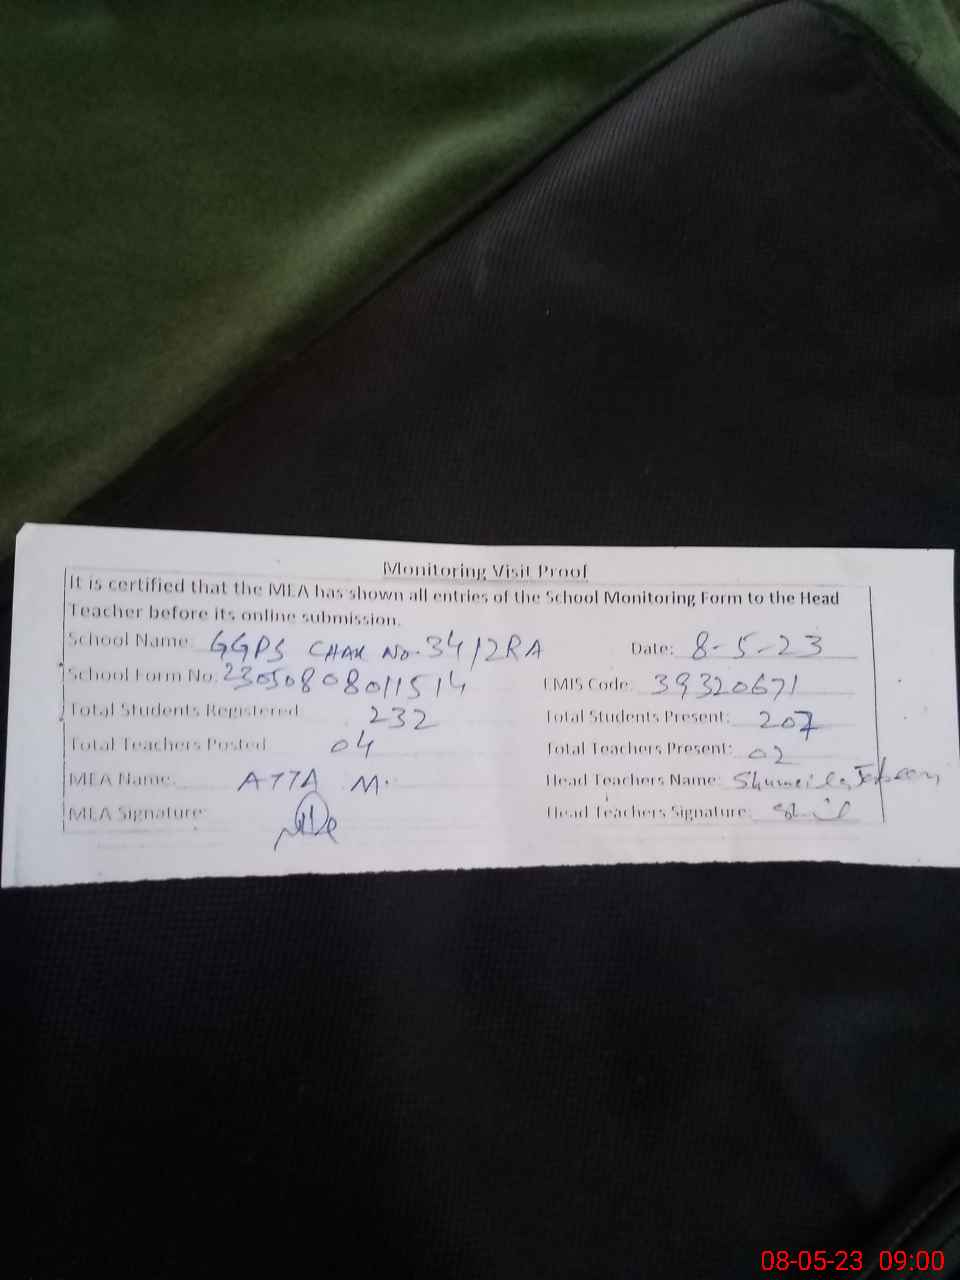 Monitoring Visit Proof
It is certified that the MEA has shown all entries of the School Monitoring Form to the Head
Teacher before its online submission.
School Name: GGPS CHAK No. 34/2RA Date: 8-5-23
School Form No. 23050808011514 EMIS Code: 39320671
Total Students Registered 232 Total Students Present: 207
Total Teachers Posted 04 Total Teachers Present: 02
MEA Name: ATTA M. Head Teachers Name: Shumeila
MEA Signature: Head Teachers Signature:
08-05-23 09:00